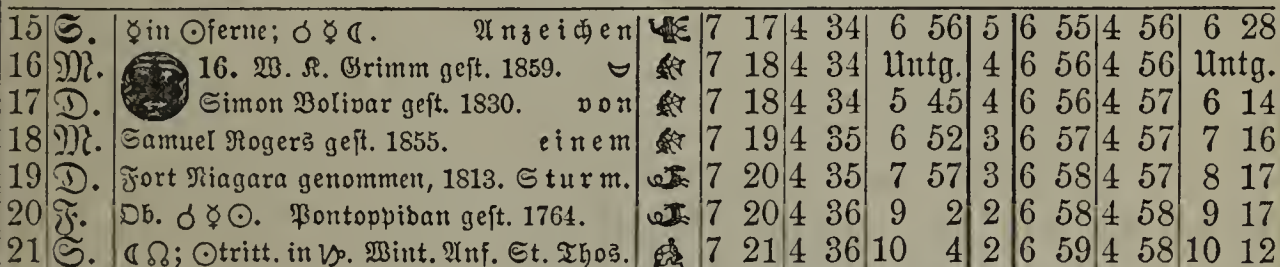 15 S. ☿ in ☉ferne; ☌ ☿ ☾. Anzeichen 7 17 4 34 6 56 5 6 55 4 56 6 28
16 M. 16. W. K. Grimm gest. 1859. 7 18 4 34 Untg. 4 6 56 4 56 Untg.
17 D. Simon Bolivar gest. 1830. von 7 18 4 34 5 45 4 6 56 4 57 6 14
18 M. Samuel Rogers gest. 1855. einem 7 19 4 35 6 52 3 6 57 4 57 7 16
19 D. Fort Niagara genommen, 1813. Sturm. 7 20 4 35 7 57 3 6 58 4 57 8 17
20 F. Ob. ☌ ☿ ☉. Pontoppidan gest. 1764. 7 20 4 36 9 2 2 6 58 4 58 9 17
21 S. ☾ ☊; ☉tritt. in ♑. Wint. Anf. St. Thos. 7 21 4 36 10 4 2 6 59 4 58 10 12